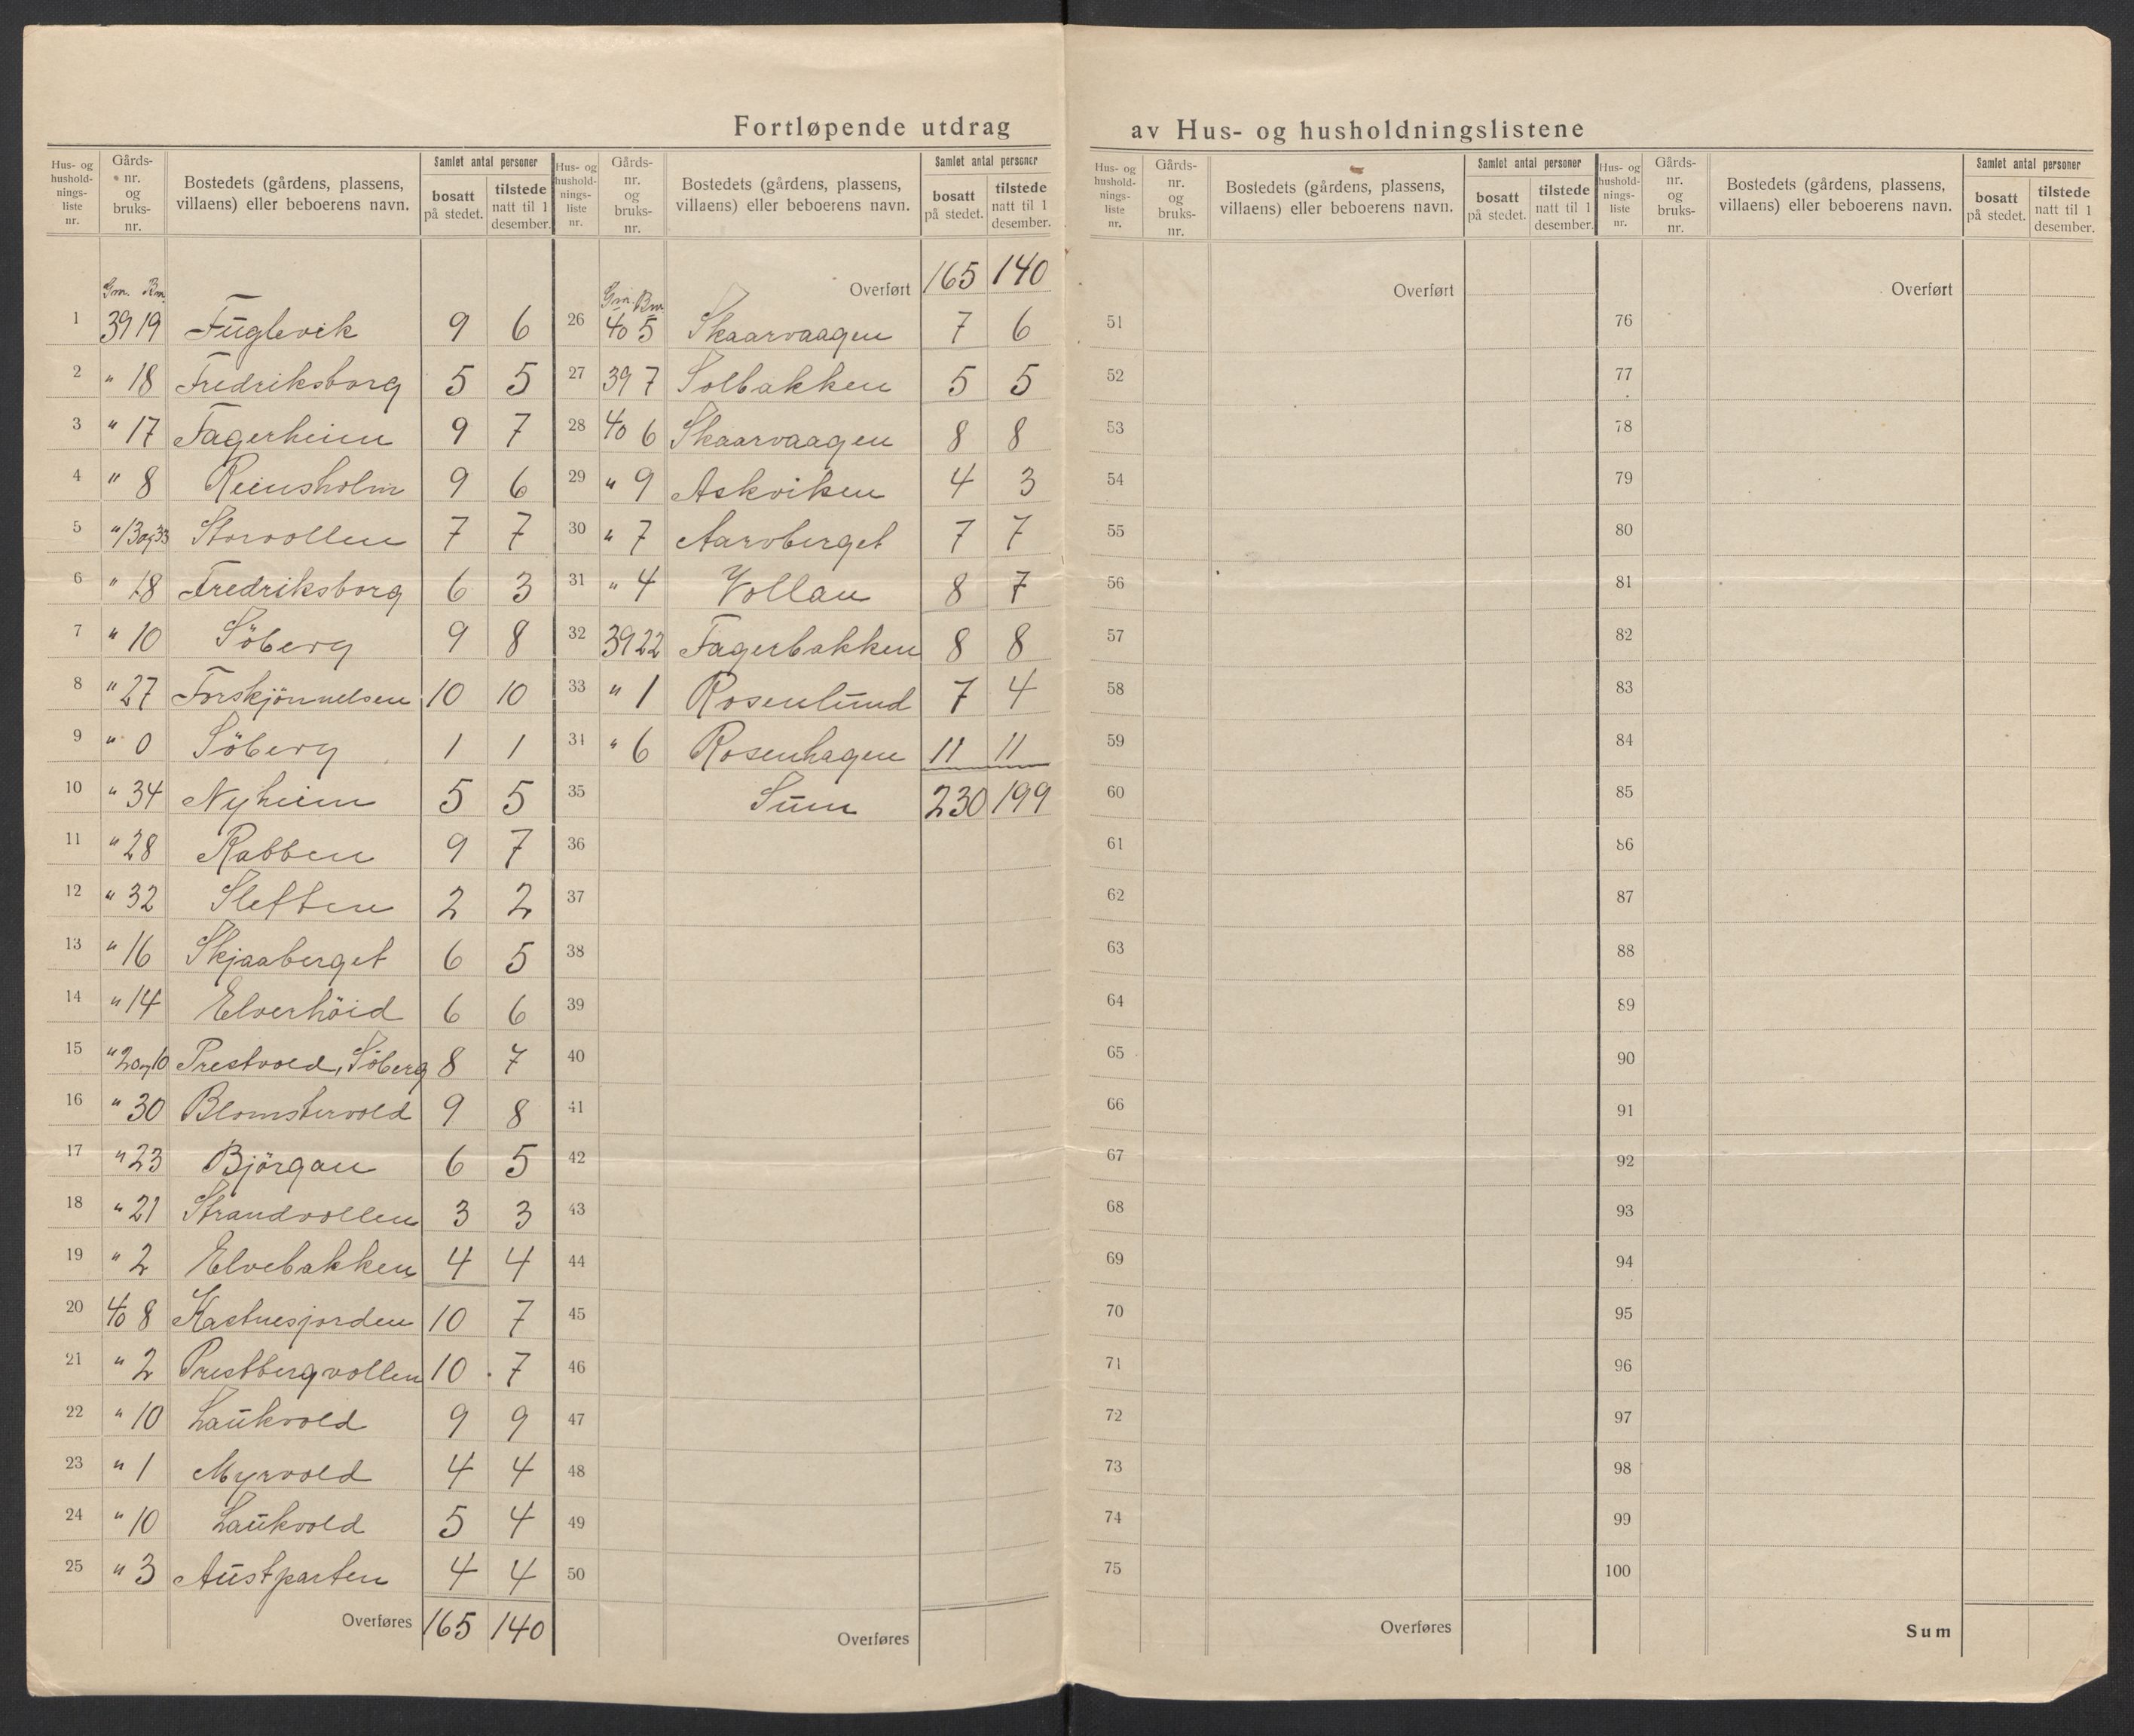 Fortløpende utdrag av Hus- og husholdningslistene
Hus- og husholdnings-liste nr. Gårds-nr. og bruks-nr. Bostedets (gårdens, plassens, villaens) eller beboerens navn. Samlet antal personer bosatt på stedet. tilstede natt til 1 desember.
Gm. Bm.
1 39 19 Fuglevik 9 6
2 " 18 Fredriksborg 5 5
3 " 17 Fagerheim 9 7
4 " 8 Reinsholm 9 6
5 " 13 og 33 Storvollen 7 7
6 " 18 Fredriksborg 6 3
7 " 10 Söberg 9 8
8 " 27 Forskjönnelsen 10 10
9 " 0 Söberg 1 1
10 " 34 Nyheim 5 5
11 " 28 Rabben 9 7
12 " 32 Sletten 2 2
13 " 16 Skjaaberget 6 5
14 " 14 Elverhöid 6 6
15 " 2 og 10 Prestvold, Söberg 8 7
16 " 30 Blomstervold 9 8
17 " 23 Björgan 6 5
18 " 21 Strandvollen 3 3
19 " 2 Elvebakken 4 4
20 40 8 Kastnesjorden 10 7
21 " 2 Prestbergvollen 10 7
22 " 10 Laukvold 9 9
23 " 1 Myrvold 4 4
24 " 10 Laukvold 5 4
25 " 3 Austparten 4 4
Overføres 165 140
Hus- og husholdnings-liste nr. Gårds-nr. og bruks-nr. Bostedets (gårdens, plassens, villaens) eller beboerens navn. Samlet antal personer bosatt på stedet. tilstede natt til 1 desember.
Overført 165 140
Gm. Bm.
26 40 5 Skaarvaagen 7 6
27 39 7 Solbakken 5 5
28 40 6 Skaarvaagen 8 8
29 " 9 Askviken 4 3
30 " 7 Aarvberget 7 7
31 " 4 Vollan 8 7
32 39 22 Fagerbakken 8 8
33 " 1 Rosenlund 7 4
34 " 6 Rosenhagen 11 11
35 Sum 230 199
36
37
38
39
40
41
42
43
44
45
46
47
48
49
50
Overføres
Hus- og husholdnings-liste nr. Gårds-nr. og bruks-nr. Bostedets (gårdens, plassens, villaens) eller beboerens navn. Samlet antal personer bosatt på stedet. tilstede natt til 1 desember.
Overført
51
52
53
54
55
56
57
58
59
60
61
62
63
64
65
66
67
68
69
70
71
72
73
74
75
Overføres
Hus- og husholdnings-liste nr. Gårds-nr. og bruks-nr. Bostedets (gårdens, plassens, villaens) eller beboerens navn. Samlet antal personer bosatt på stedet. tilstede natt til 1 desember.
Overført
76
77
78
79
80
81
82
83
84
85
86
87
88
89
90
91
92
93
94
95
96
97
98
99
100
Sum